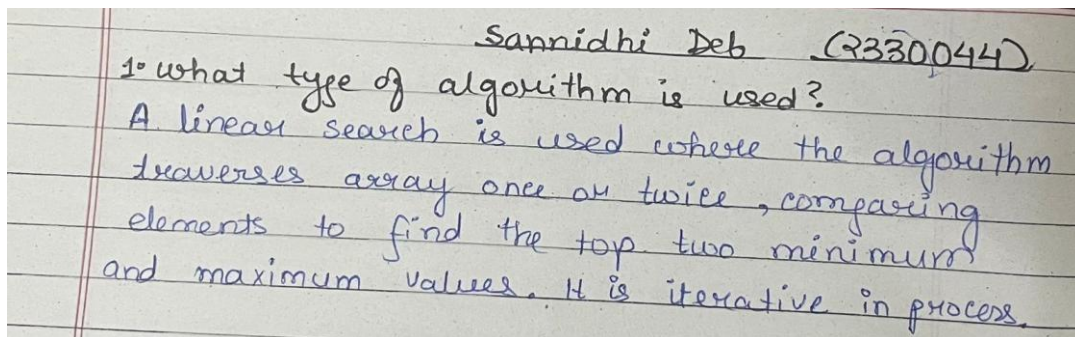 Sannidhi Deb (2330044)
1. what type of algorithm is used?
A linear search is used where the algorithm
traverses array once or twice, comparing
elements to find the top two minimum
and maximum values. It is iterative in process.